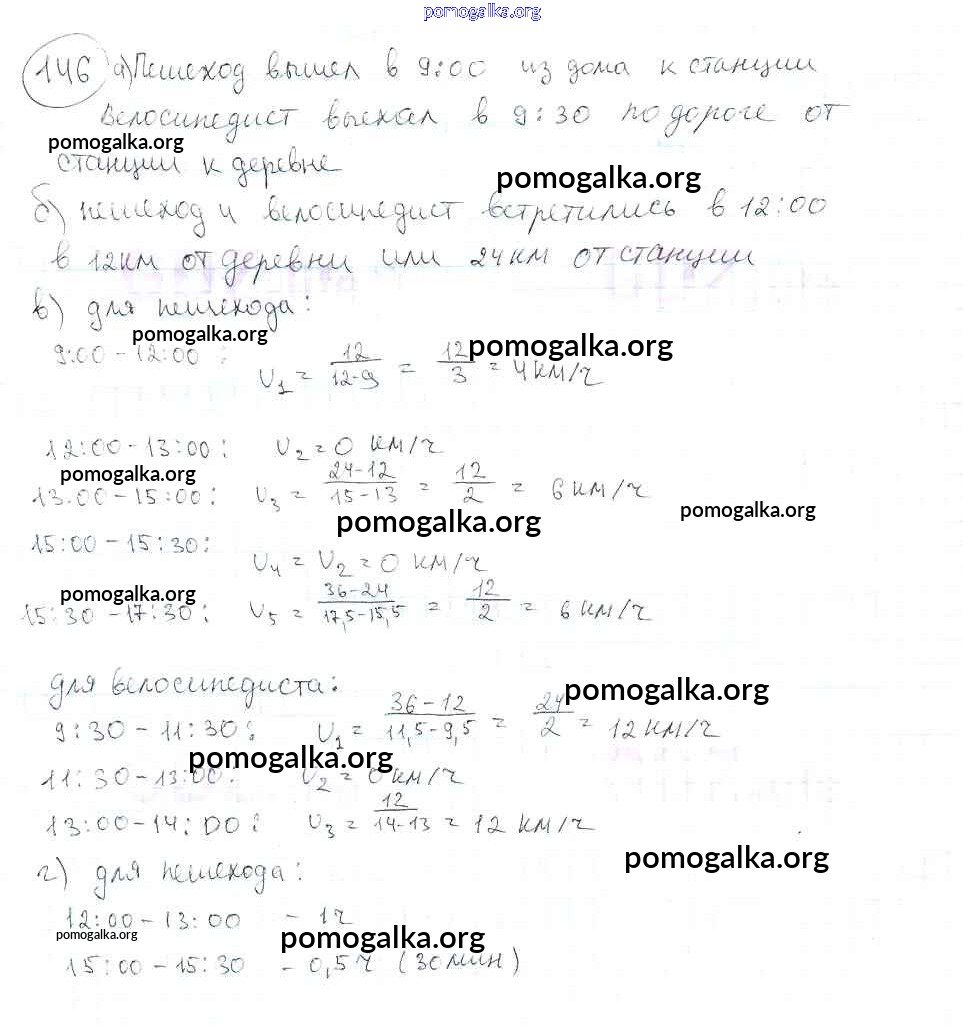 pomogalka.org
146 а) Пешеход вышел в 9:00 из дома к станции
Велосипедист выехал в 9:30 по дороге от
pomogalka.org
станции к деревне
pomogalka.org
б) пешеход и велосипедист встретились в 12:00
в 12км от деревни или 24км от станции
в) для пешехода:
pomogalka.org
pomogalka.org
9:00 - 12:00 : U₁ = 12/12-9 = 12/3 = 4км/ч
12:00 - 13:00: U₂ = 0 км/ч
pomogalka.org
13.00 - 15:00: U₃ = 24-12/15-13 = 12/2 = 6км/ч
pomogalka.org
pomogalka.org
15:00 - 15:30: U₄ = U₂ = 0 км/ч
pomogalka.org
15:30 - 17:30: U₅ = 36-24/17,5-15,5 = 12/2 = 6 км/ч
для велосипедиста:
pomogalka.org
9:30 - 11:30: U₁ = 36-12/11,5-9,5 = 24/2 = 12км/ч
pomogalka.org
11:30 - 13:00: U₂ = 0км/ч
13:00 - 14:00: U₃ = 12/14-13 = 12 км/ч
pomogalka.org
г) для пешехода:
12:00 - 13:00 - 1ч
pomogalka.org
pomogalka.org
15:00 - 15:30 - 0,5ч (30мин)